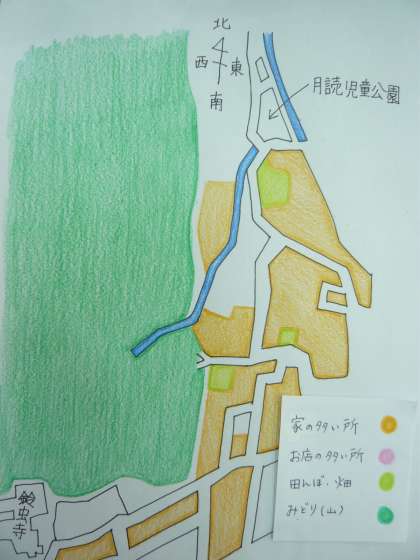 北
西 東
南
月読児童公園
鈴虫寺
家の多い所
お店の多い所
田んぼ・畑
みどり(山)